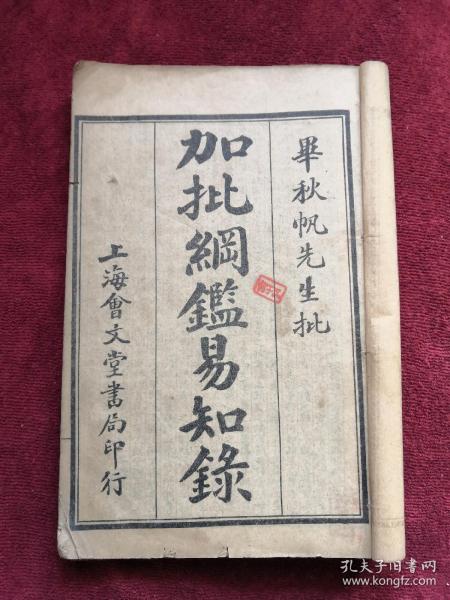 畢秋帆先生批
加批綱鑑易知錄
上海會文堂書局印行
孔夫子旧书网
www.kongfz.com